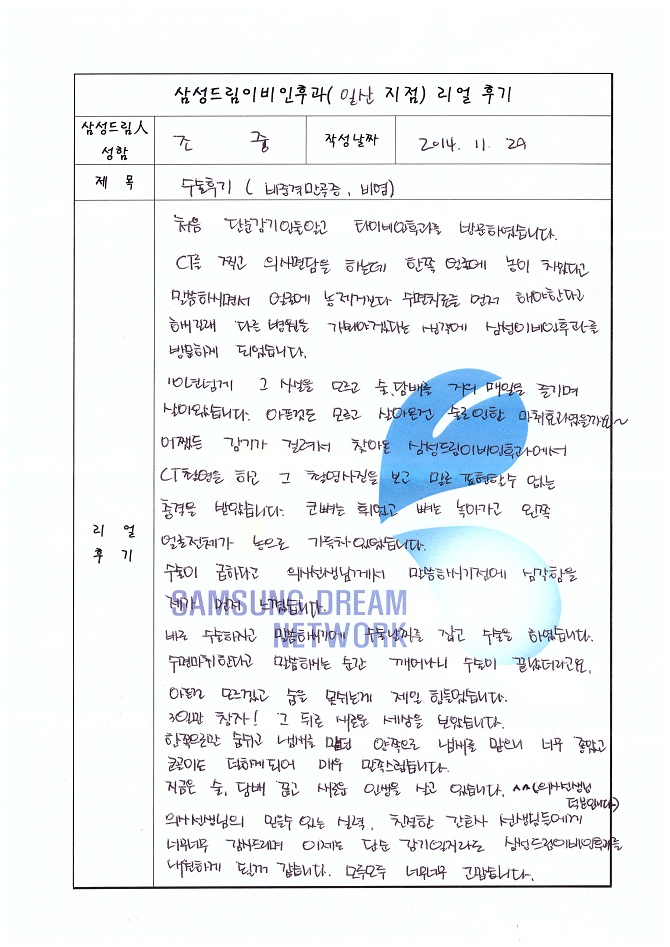 삼성드림이비인후과( 일산 지점) 리얼 후기
삼성드림人 성함
조 중
작성날짜
2014. 11. 29
제 목
수술후기 ( 비중격만곡증, 비염)
리 얼 후 기
처음 단순감기인줄알고 타이비인후과를 방문하였습니다.
CT를 찍고 의사면담을 하는데 한쪽 얼굴에 농이 차있다고
말씀하시면서 얼굴에 농제거보다 수면치료를 먼저 해야한다고
하시길래 다른 병원을 가봐야겠다는 생각에 삼성이비인후과를
방문하게 되었습니다.
10년넘게 그 사실을 모르고 술,담배를 거의 매일을 즐기며
살아왔습니다. 아픈것도 모르고 살아온건 술로인한 마취효과였을까요~
어쨌든 감기가 걸려서 찾아온 삼성드림이비인후과에서
CT촬영을 하고 그 촬영사진을 보고 말로 표현할수 없는
충격을 받았습니다. 코뼈는 휘었고 뼈는 녹아가고 왼쪽
얼굴전체가 농으로 가득차있었습니다.
수술이 급하다고 의사선생님께서 말씀하시기전에 심각함을
제가 먼저 느꼈습니다.
SAMSUNG DREAM
NETWORK
바로 수술하자고 말씀하시기에 수술날짜를 잡고 수술을 하였습니다.
수면마취한다고 말씀하시는 순간 깨어나니 수술이 끝났더라고요.
아픈건 모르겠고 숨을 못쉬는게 제일 힘들었습니다.
3일만 참자! 그 뒤로 새로운 세상을 보았습니다.
한쪽으로만 숨쉬고 냄새를 맡던 양쪽으로 냄새를 맡으니 너무 좋았고
코골이도 덜하게되어 매우 만족스럽습니다.
지금은 술, 담배 끊고 새로운 인생을 살고 있습니다. ^^(의사선생님 덕분입니다)
의사선생님의 믿을수 있는 실력, 친절한 간호사 선생님들에게
너무너무 감사드리며 이제는 단순 감기일지라도 삼성드림이비인후과를
내원하게 될거 같습니다. 모두모두 너무너무 고맙습니다.